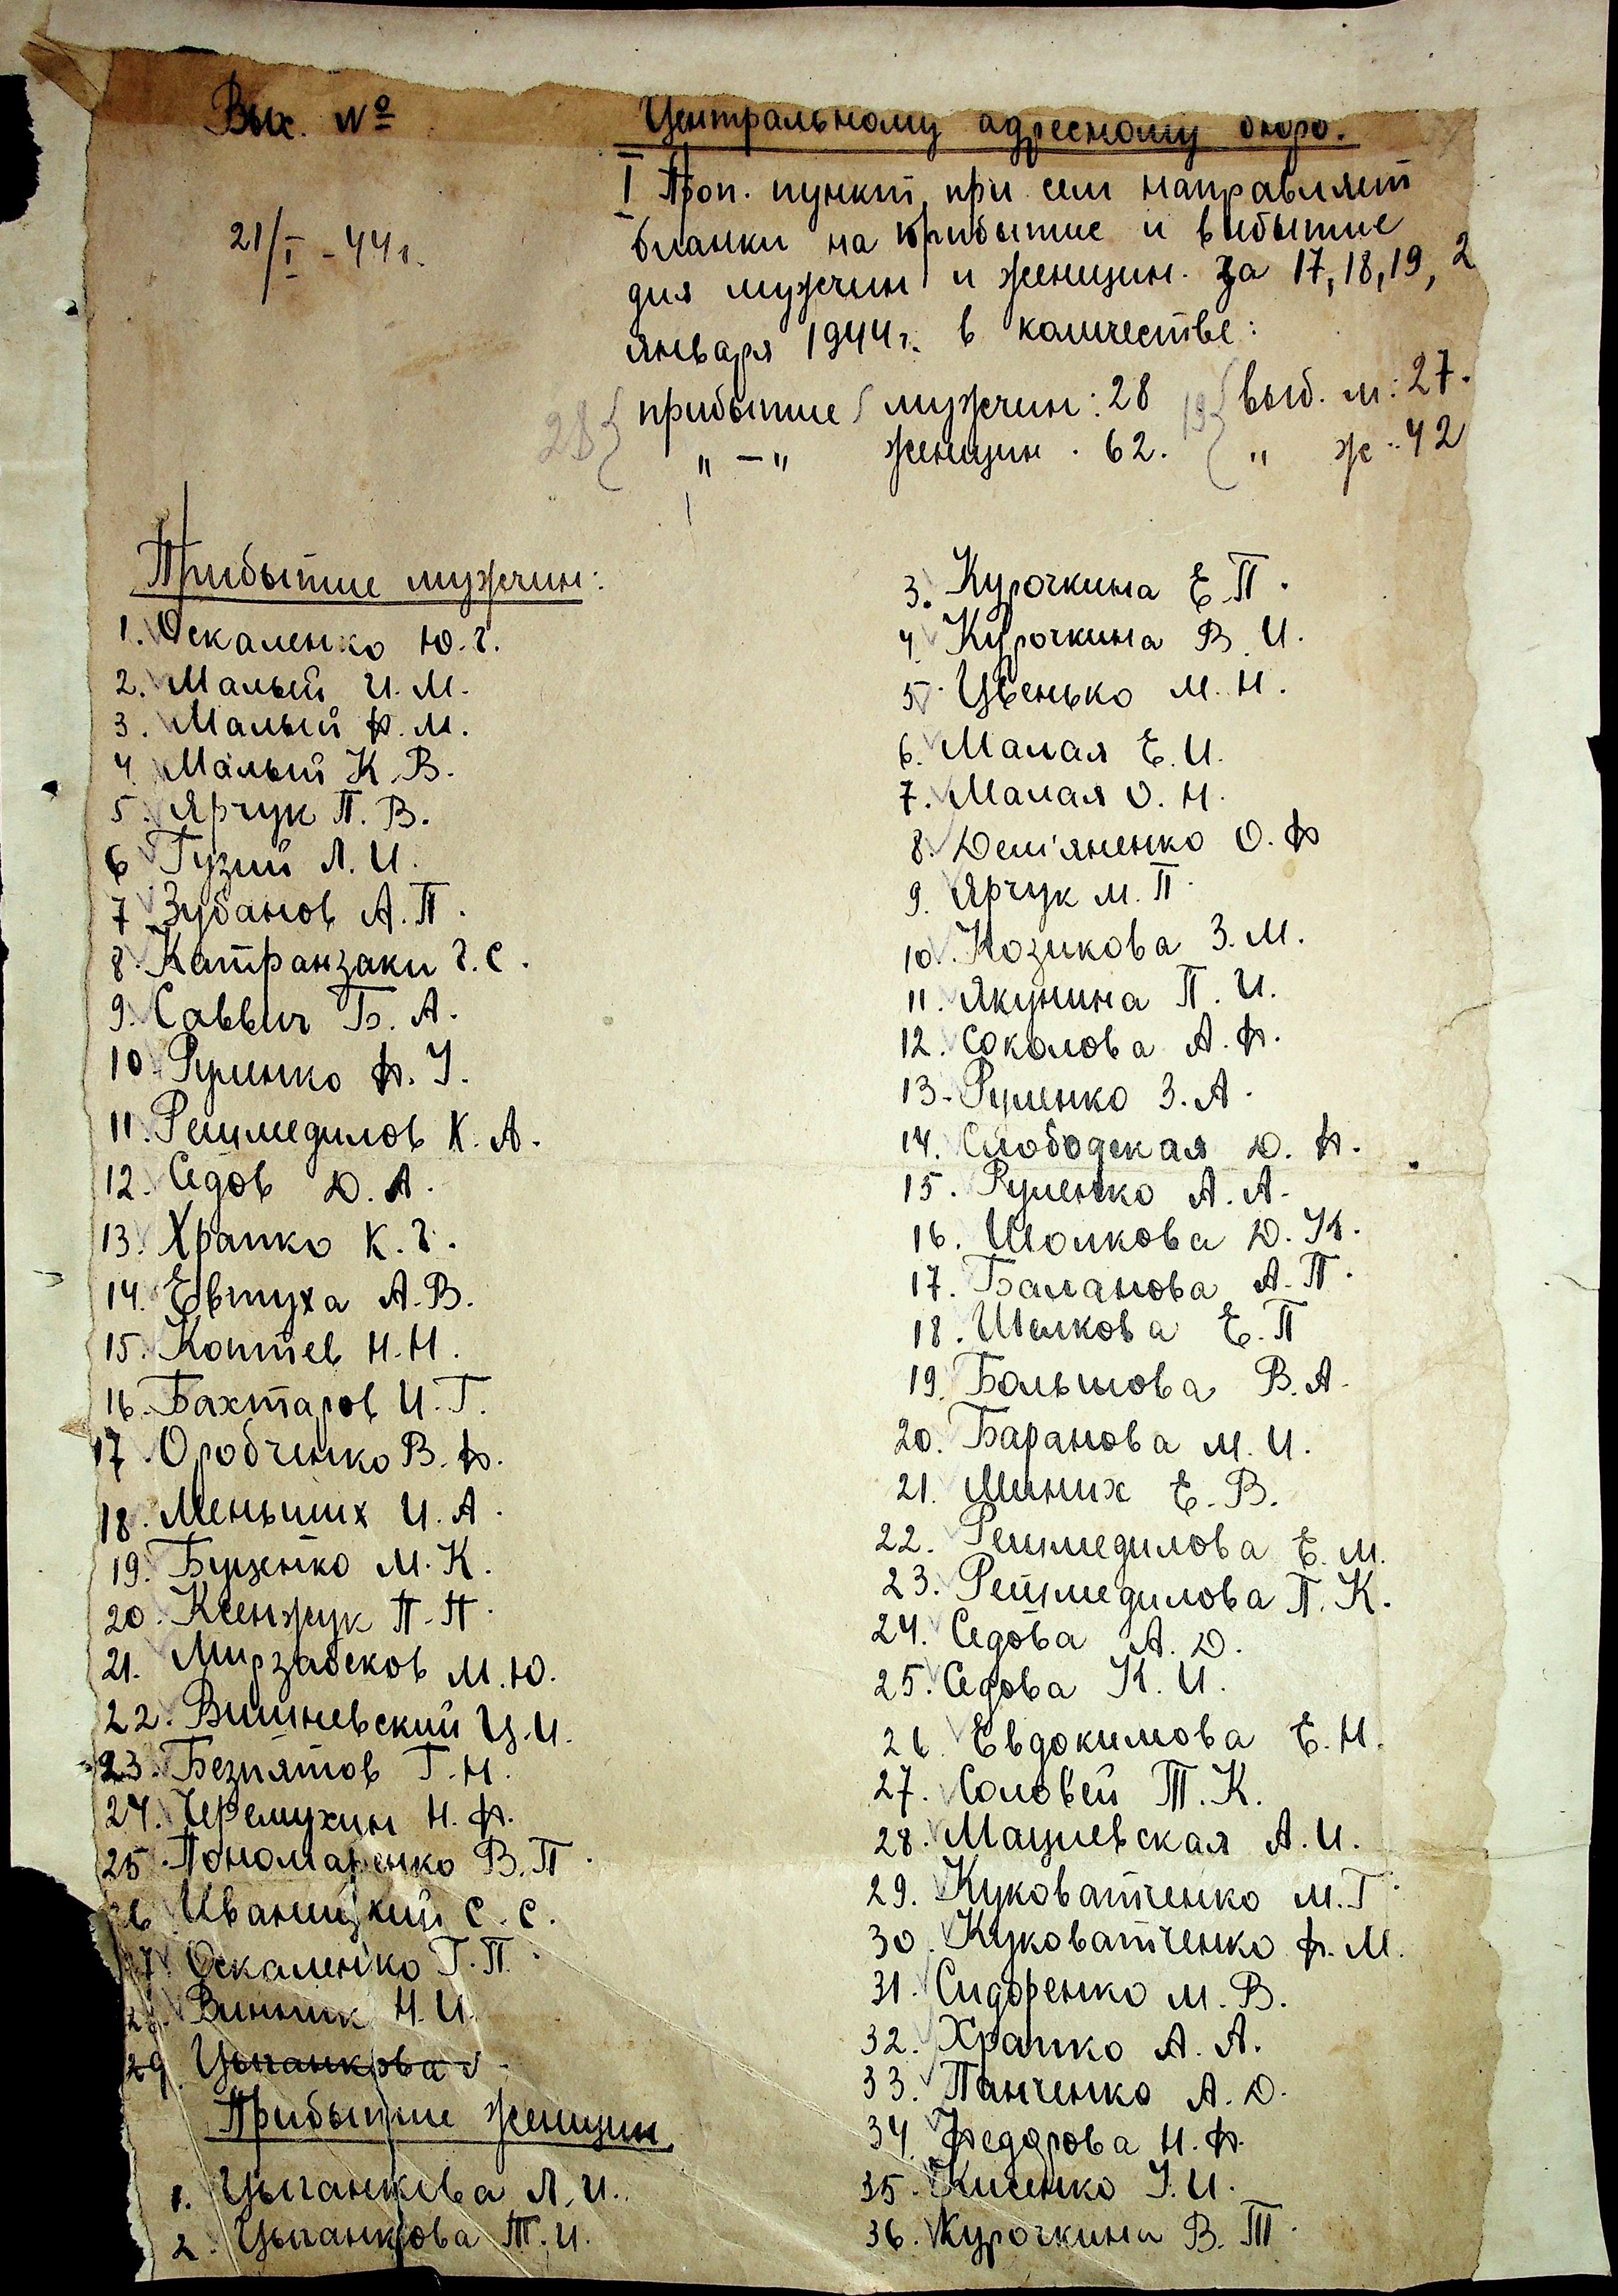 Вых. №
21/I - 44г.
Центральному адресному бюро.
I Проп. пункт при сем направляет
бланки на прибытие и выбытие
для мужчин и женщин. За 17, 18, 19, 2
января 1944г. в количестве:
28 { прибытие { мужчин: 28 19 { выб. м: 27.
" — " женщин . 62. " ж: 42
Прибытие мужчин:
1. Оскаленко Ю. Г.
2. Малый И. М.
3. Малый Ф. М.
4. Малый К. В.
5. Ярчук П. В.
6 Гузий Л. И.
7 Зубанов А. П.
8. Катранзаки Г. С.
9. Саввич Б. А.
10. Руленко Ф. У.
11. Решмедилов К. А.
12. Седов Д. А.
13. Храпко К. Г.
14. Евтуха А. В.
15. Коптев Н. Н.
16. Бахтаров И. Г.
17. Оробченко В. Ф.
18. Меньших И. А.
19. Буценко М. К.
20. Ксенжук П. Н.
21. Мирзабеков М. Ю.
22. Вишневский Ц. И.
23. Безпятов Г. Н.
24. Черемухин Н. Ф.
25. Пономаренко В. П.
26 Иваницкий С. С.
27. Оскаленко Г. П.
28. Винник Н. И.
29. Цыганкова
Прибытие женщин
1. Цыганкова Л. И.
2. Цыганкова Т. И.
3. Курочкина Е. П.
4. Курочкина В. И.
5. Цвенько М. Н.
6. Малая Е. И.
7. Малая О. Н.
8. Дем'яненко О. Ф
9. Ярчук М. П.
10. Козикова З. М.
11. Якунина П. И.
12. Соколова А. Ф.
13. Руленко З. А.
14. Слободская Д. Ф.
15. Руленко А. А.
16. Шолкова Д. К.
17. Баланова А. П.
18. Шелкова Е. П
19. Большова В. А.
20. Баранова М. И.
21. Миних Е. В.
22. Решмедилова Е. М.
23. Решмедилова П. К.
24. Седова А. Д.
25. Седова К. И.
26. Евдокимова Е. Н.
27. Соловей Т. К.
28. Мациевская А. И.
29. Куковатченко М. Г.
30. Куковатченко Ф. М.
31. Сидоренко М. В.
32. Храпко А. А.
33. Панченко А. Д.
34. Федорова Н. Ф.
35. Кисенко У. И.
36. Курочкина В. Т.